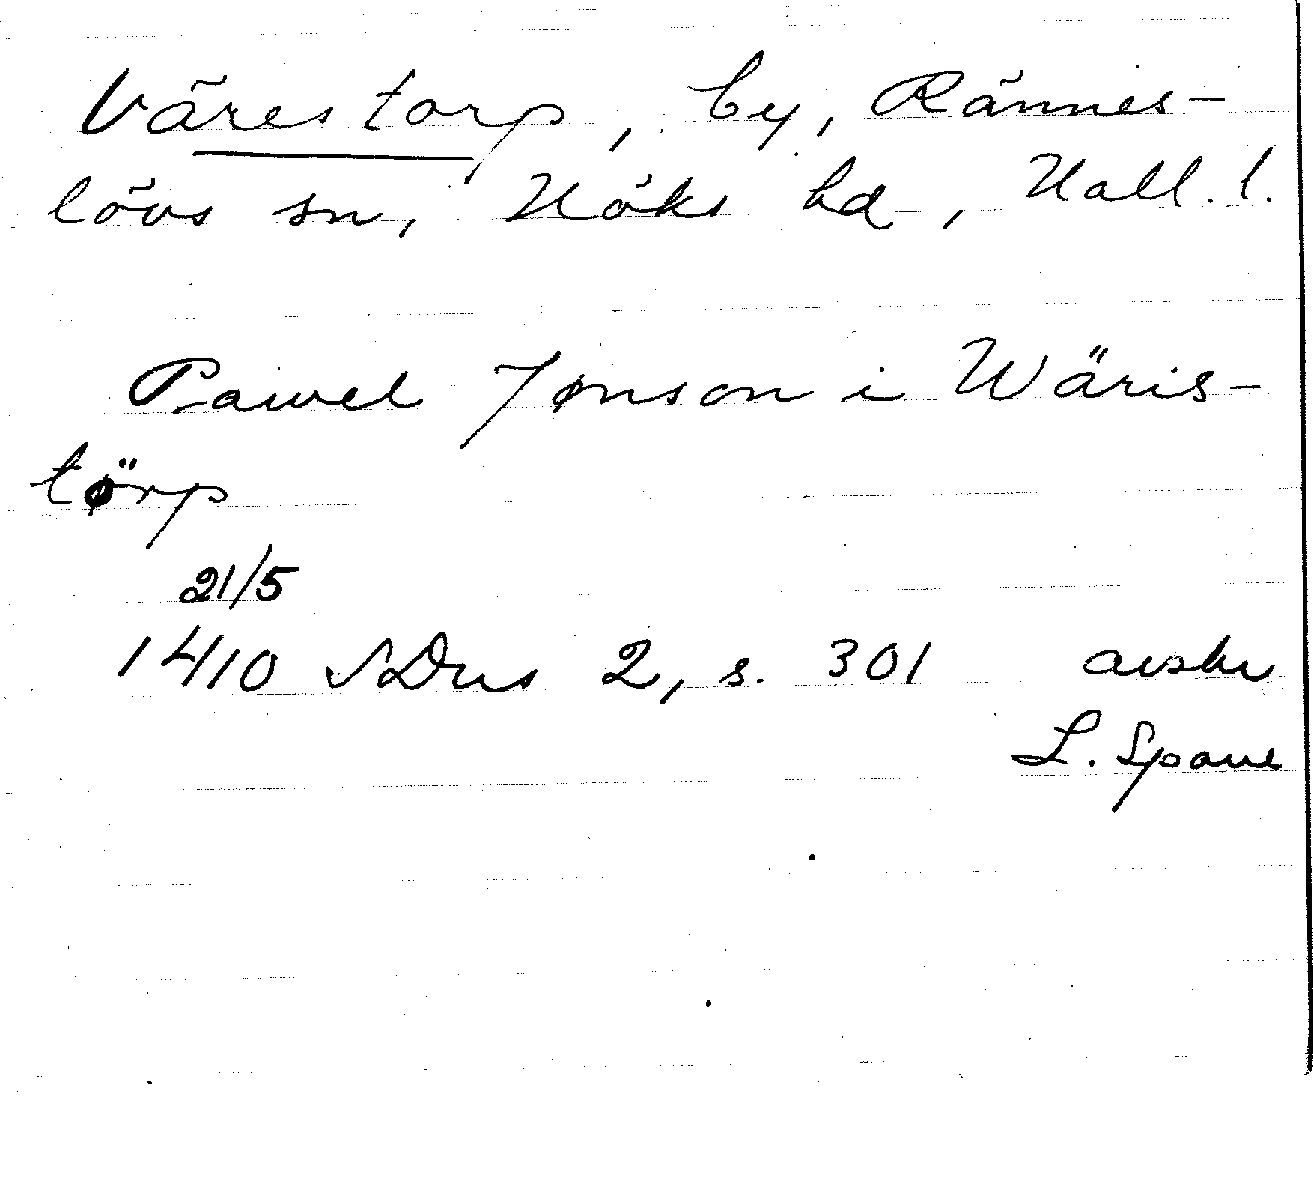 Värestorp, by, Rännes-
lövs sn, Höks hd, Hall. l.
Pawel Jønson i Wäris-
törp
21/5
1410 SDns 2, s. 301 avskr
L. Spane